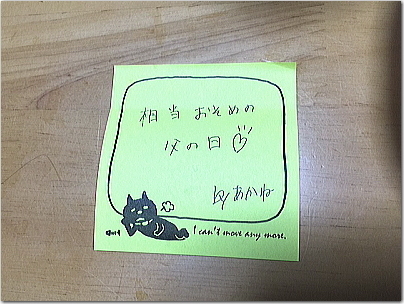 相当おそめの
父の日♡
by あかね
I can't move any more.